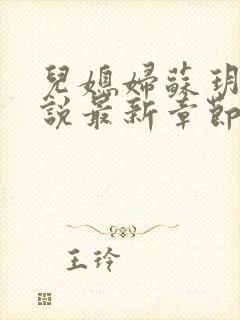 兒媳婦蘇玥
說最新章節
王玲